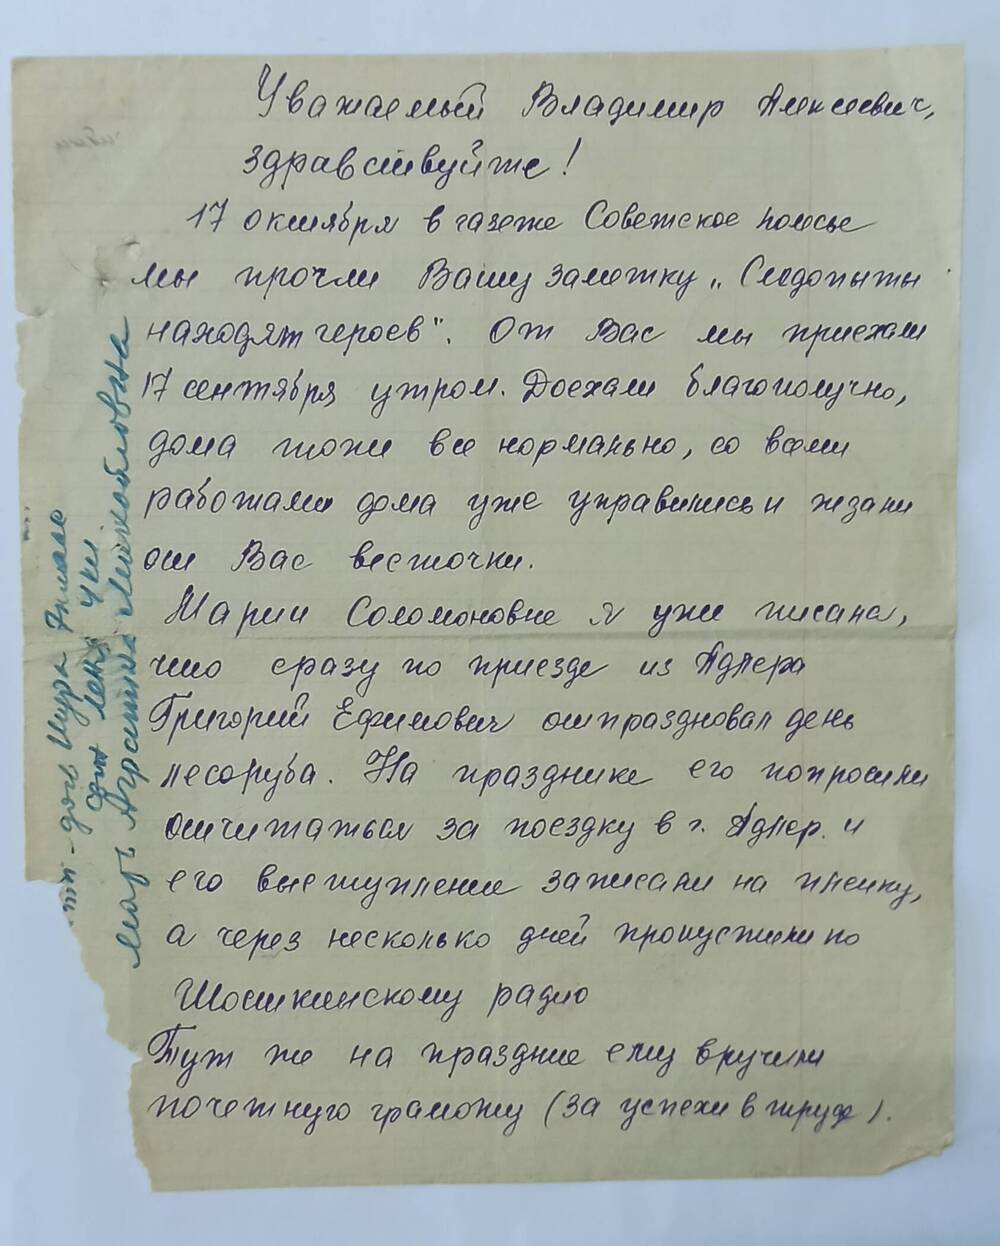 Уважаемый Владимир Алексеевич,
здравствуйте!
17 октября в газете Советское полесье
мы прочли Вашу заметку „Следопыты
находят героев". От Вас мы приехали
17 сентября утром. Доехали благополучно,
дома тоже все нормально, со всеми
работами дома уже управились и ждали
от Вас весточки.
Марии Соломоновне я уже писала,
что сразу по приезде из Адлера
Григорий Ефимович отпраздновал день
лесоруба. На празднике его попросили
отчитаться за поездку в г. Адлер. и
его выступление записали на пленку,
а через несколько дней пропустили по
Шоткинскому радио
Тут же на праздние ему вручили
почетную грамоту (за успехи в труде).
мать Агра Михайловна
сын Леня
Шура